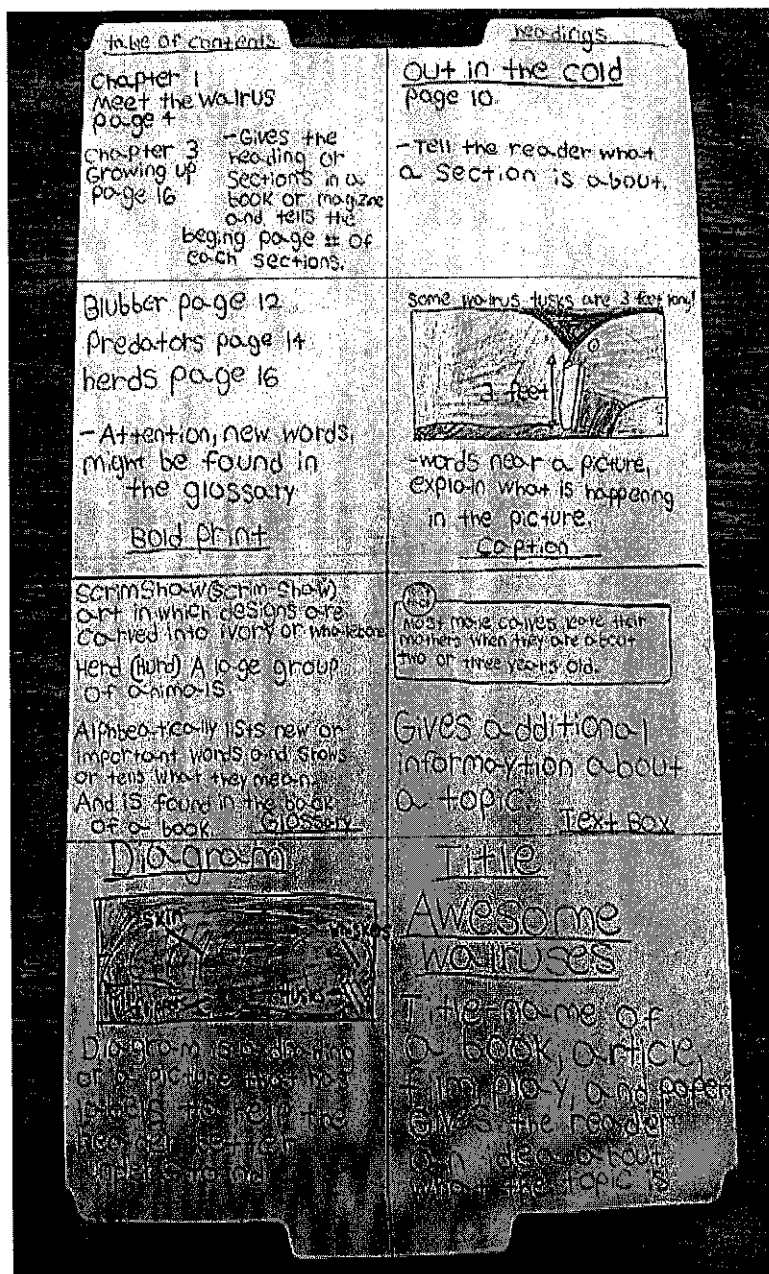 table of contents
Chapter 1
Meet the Walrus
page 4
Chapter 3
Growing up
page 16
-Gives the
heading or
sections in a
book or magizne
and tells the
beging page # of
each sections.
headings
Out in the cold
page 10
-Tell the reader what
a section is about.
Blubber page 12
Predators page 14
herds page 16
-Attention, new words,
might be found in
the glossary
Bold Print
Some walrus tusks are 3 feet long!
3 feet
-words near a picture,
explain what is happening
in the picture.
Caption
ScrimShaw (Scrim-Shaw)
art in which designs are
carved into ivory or whalebone
Herd (Hurd) A lage group
of animals.
Alphbeatically lists new or
important words and Stows
or tells what they mean.
And is found in the back
of a book. Glossary
Most male calves leave their
mothers when they are about
two or three years old.
Gives additional
informaytion about
a topic.
Text Box
Diagram
skin
tusks
Diagram is a drawing
or a picture that has
labels to help the
Title
Awesome
walruses
Title-name of
a book, article,
film, play, and paper
Gives the reader
an idea about
what the topic is